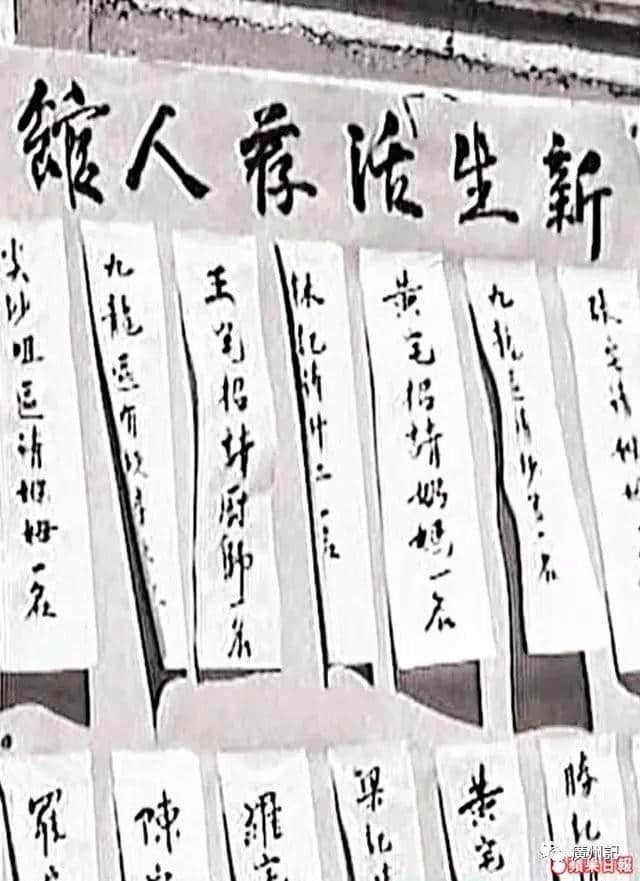 新生活荐人館
張宅請
九龍區請一名
黄宅招請奶媽一名
林記請什工一名
王宅招請厨師一名
九龍區有
尖沙咀區請媬姆一名
勝記
黄宅
梁記
羅宅
陳
羅
廣州記
蘋果日報